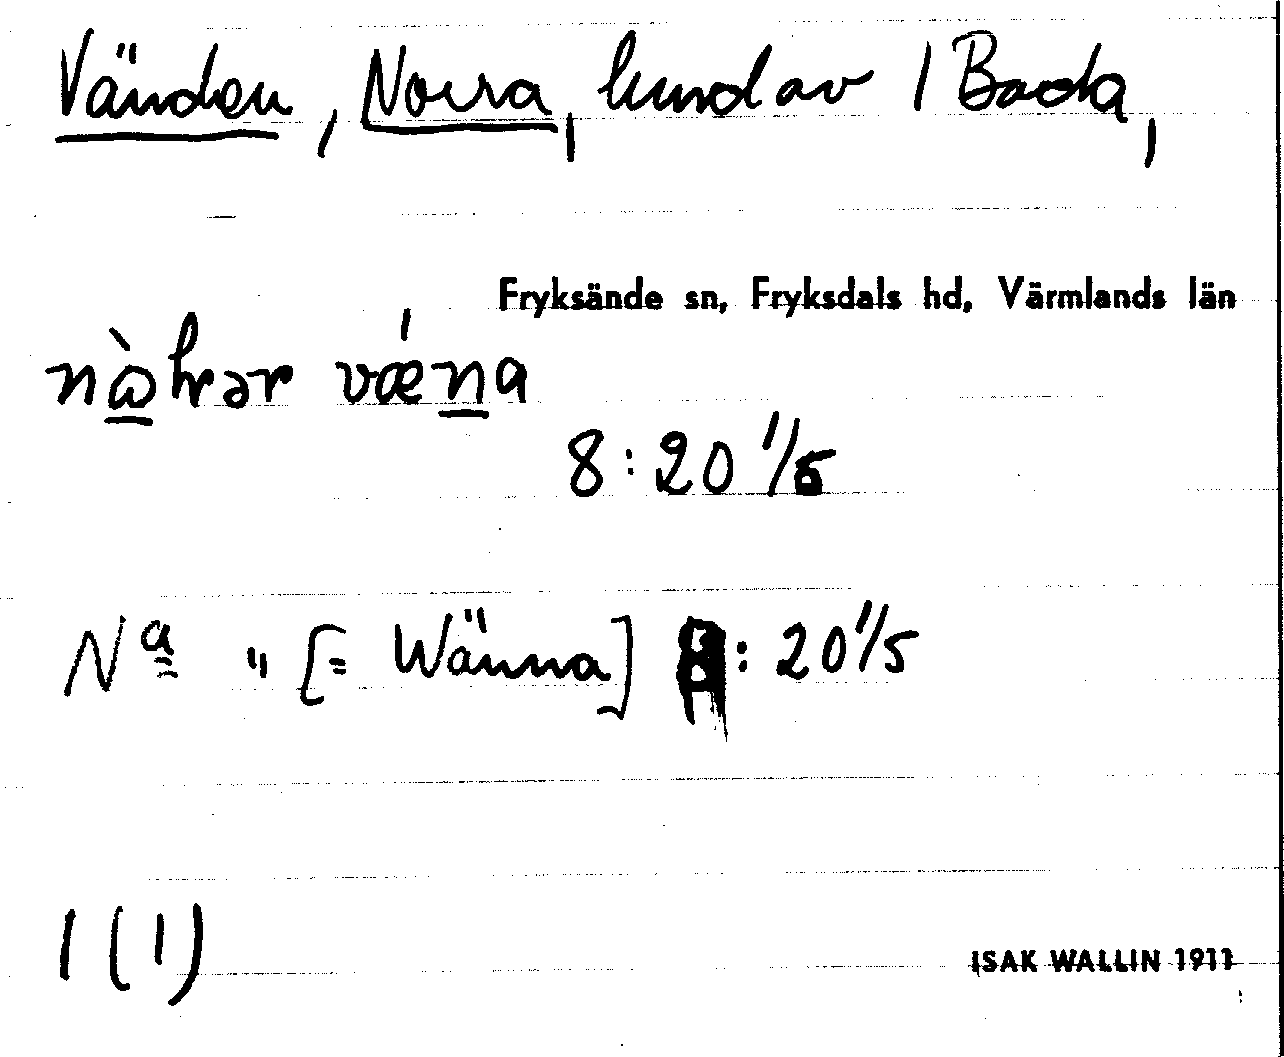 Vänden, Norra, hmd av 1 Bada,
Fryksände sn, Fryksdals hd, Värmlands län
vǽna
8:20 1/5
Nª " [= Wänna] 8:20 1/5
1 (1)
ISAK WALLIN 1911